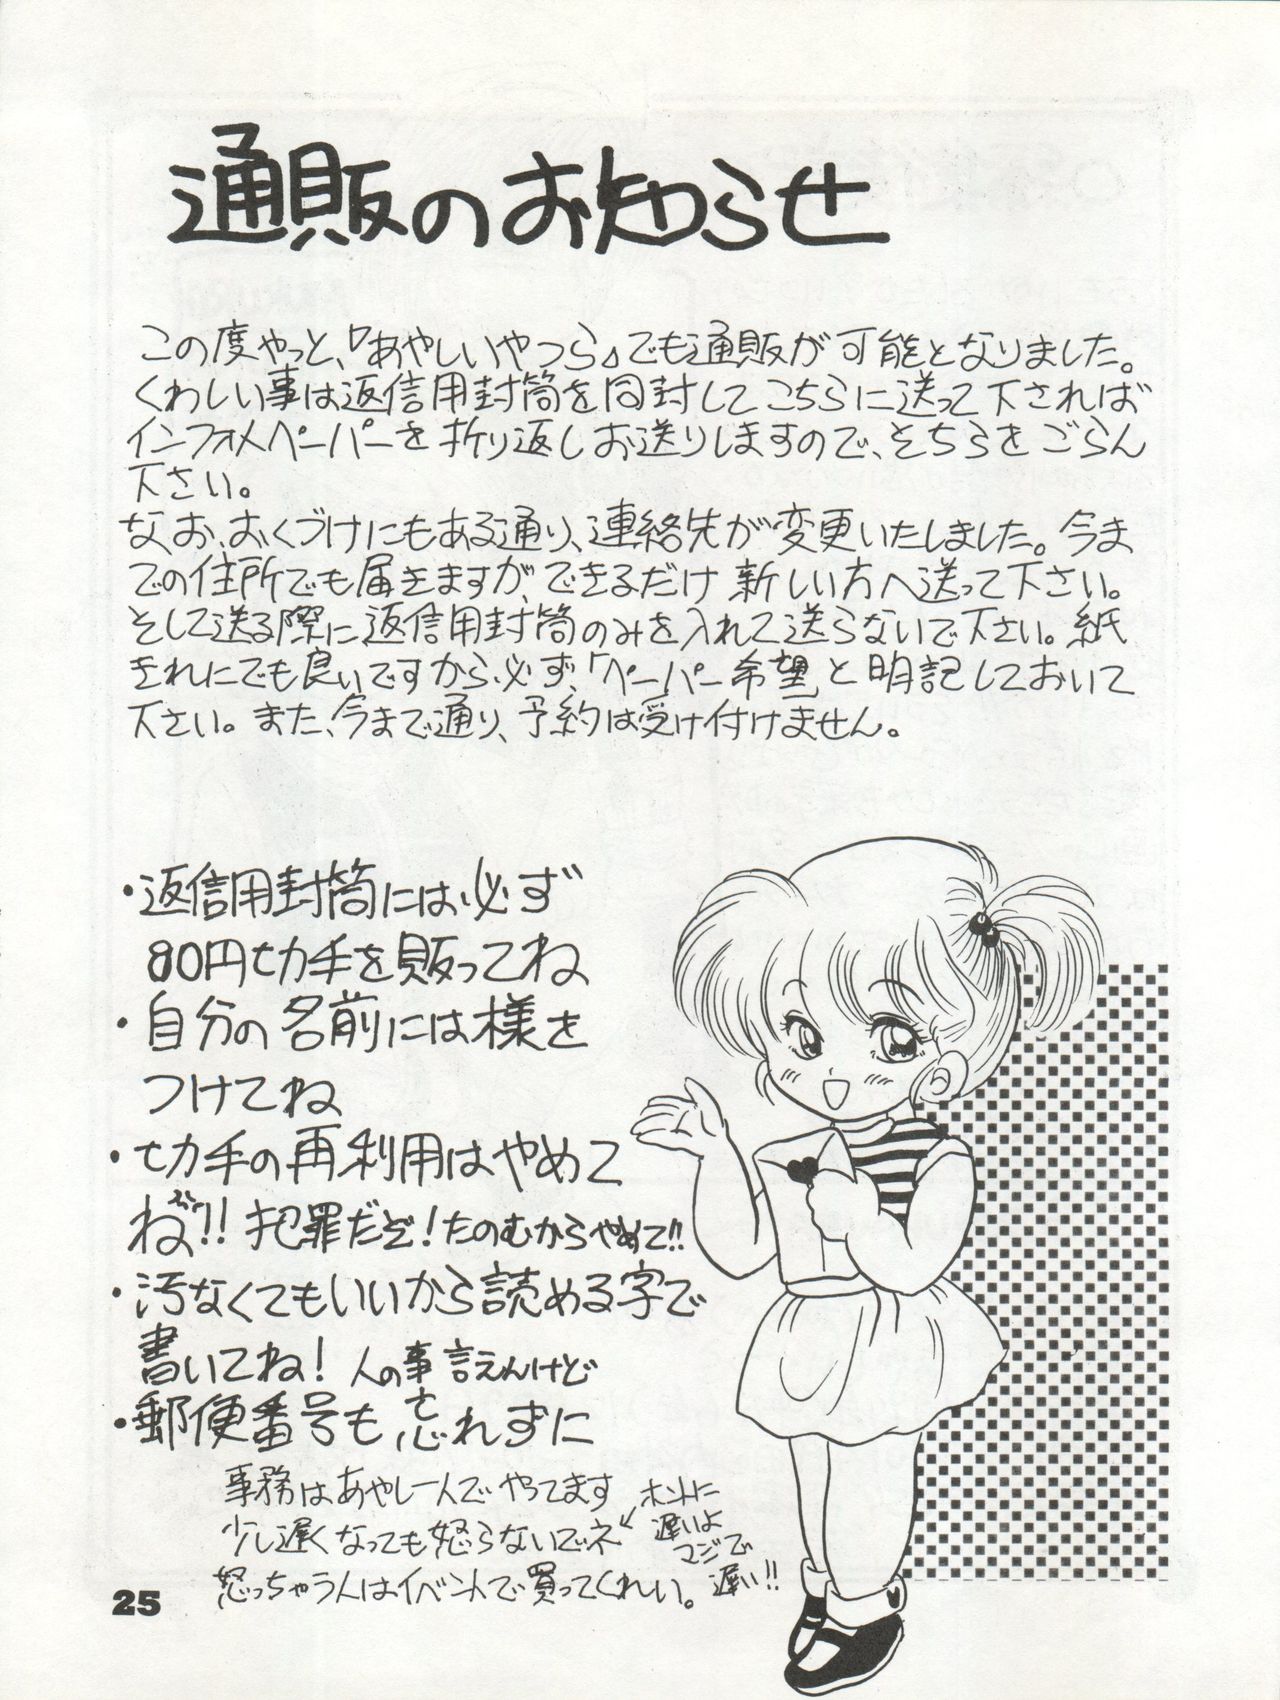 通販のお知らせ
この度やっと、『あやしいやつら』でも通販が可能となりました。
くわしい事は返信用封筒を同封してこちらに送って下されば
インフォメペーパーを折り返しお送りしますので、そちらをごらん
下さい。
なお、おくづけにもある通り、連絡先が変更いたしました。今ま
での住所でも届きますが、できるだけ新しい方へ送って下さい。
そして送る際に返信用封筒のみを入れて送らないで下さい。紙
きれにでも良いですから必ず、「ペーパー希望」と明記しておいて
下さい。また、今まで通り、予約は受け付けません。
・返信用封筒には必ず
80円切手を販ってね
・自分の名前には様を
つけてね
・切手の再利用はやめて
ね!! 犯罪だぞ!たのむからやめて!!
・汚なくてもいいから読める字で
書いてね! 人の事言えんけど
・郵便番号も忘れずに
事務はあやし一人でやってます
少し遅くなっても怒らないでネ
怒っちゃう人はイベントで買ってくれい。
ホントに
遅いよ
マジで
遅い!!
25